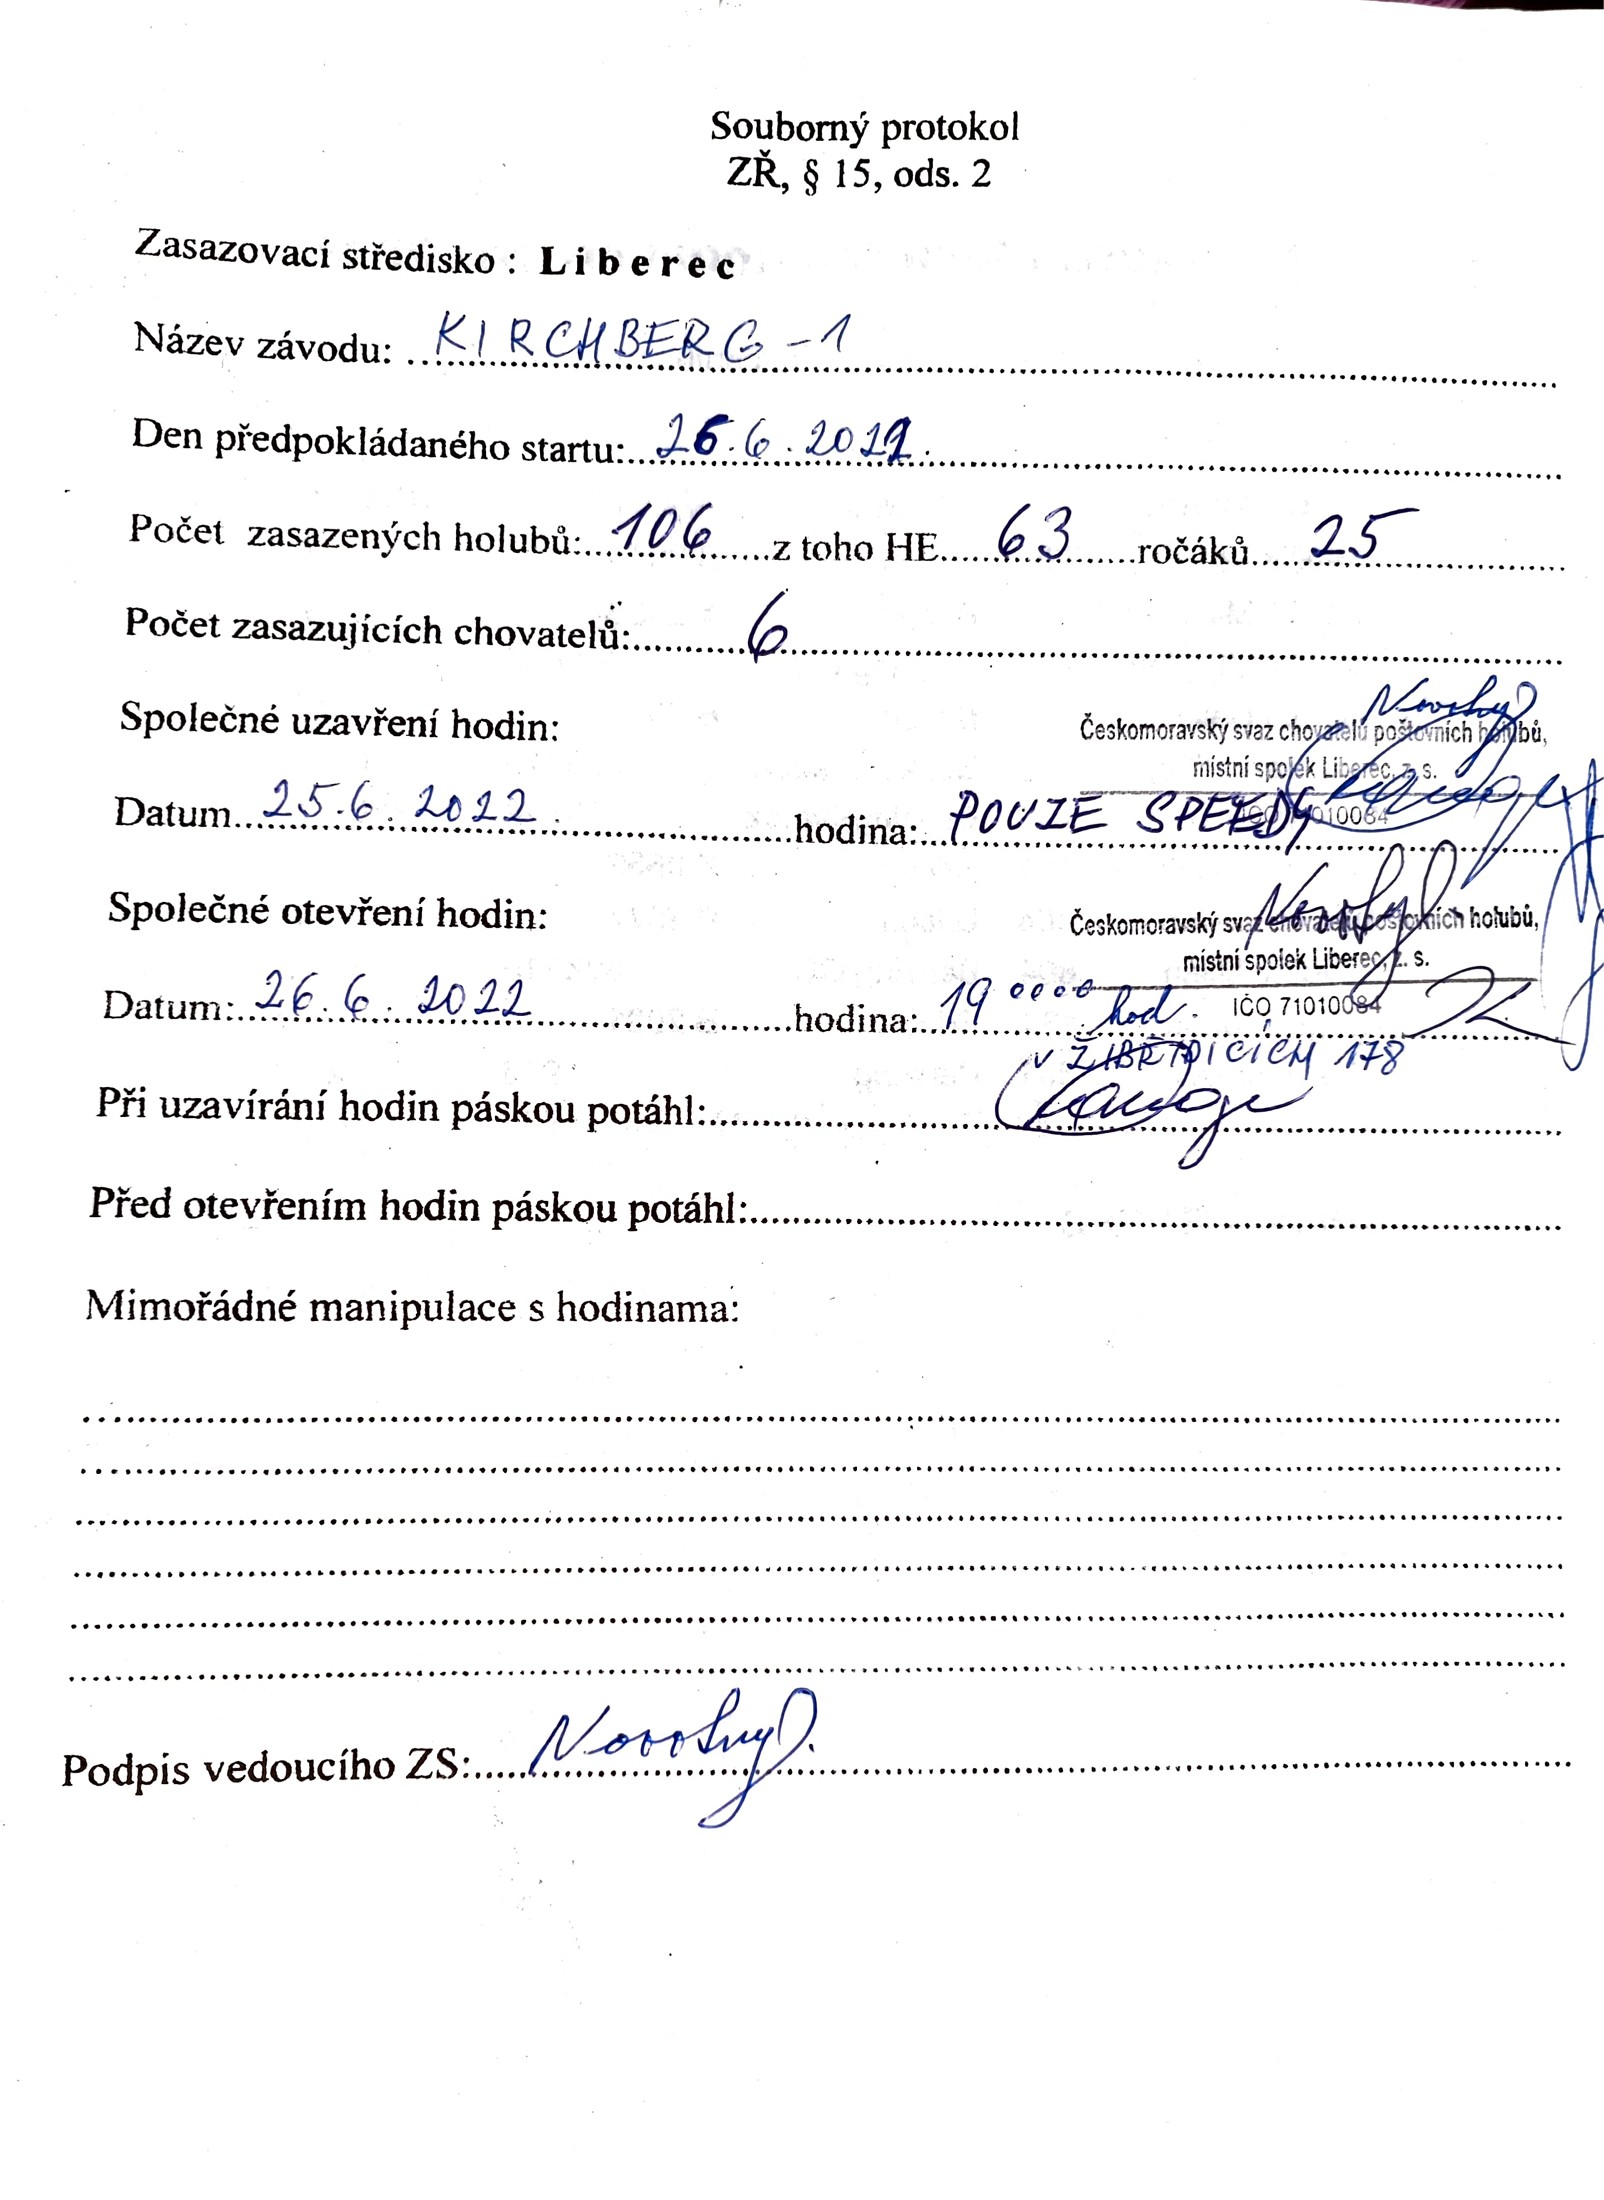 Souborný protokol
ZŘ, § 15, ods. 2
Zasazovací středisko : Liberec
Název závodu: KIRCHBERG-1
Den předpokládaného startu: 26.6.2022.
Počet zasazených holubů: 106 z toho HE 63 ročáků 25
Počet zasazujících chovatelů: 6
Společné uzavření hodin:
Novotný
Českomoravský svaz chovatelů poštovních holubů,
místní spolek Liberec, z. s.
Datum 25.6.2022. hodina: POUZE SPEEDY
IČO 71010084
Společné otevření hodin:
Novotný
Českomoravský svaz chovatelů poštovních holubů,
místní spolek Liberec, z. s.
Datum: 26.6.2022 hodina: 19 0000 hod. IČO 71010084
v ŽIBŘIDICÍCH 178
Při uzavírání hodin páskou potáhl:
Před otevřením hodin páskou potáhl:
Mimořádné manipulace s hodinama:
Podpis vedoucího ZS: Novotný